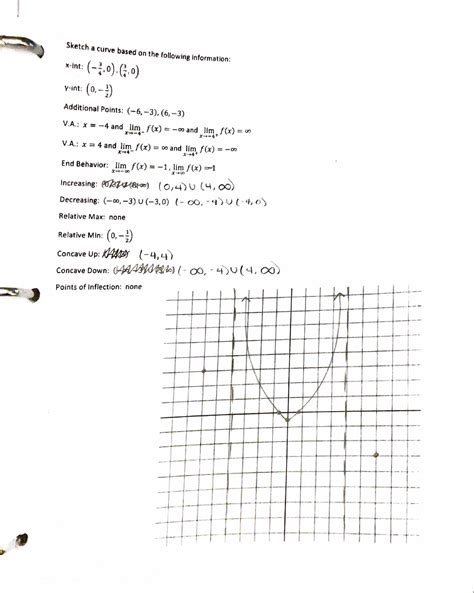 Sketch a curve based on the following information:
x-int: (-3/4, 0), (3/4, 0)
y-int: (0, -1/2)
Additional Points: (-6, -3), (6, -3)
V.A.: x = -4 and lim x→-4⁻ f(x) = -∞ and lim x→-4⁺ f(x) = ∞
V.A.: x = 4 and lim x→4⁻ f(x) = ∞ and lim x→4⁺ f(x) = -∞
End Behavior: lim x→-∞ f(x) = -1, lim x→∞ f(x) = -1
Increasing: (0, 4) ∪ (4, ∞)
Decreasing: (-∞, -3) ∪ (-3, 0) (-∞, -4) ∪ (-4, 0)
Relative Max: none
Relative Min: (0, -1/2)
Concave Up: (-4, 4)
Concave Down: (-∞, -4) ∪ (4, ∞)
Points of Inflection: none